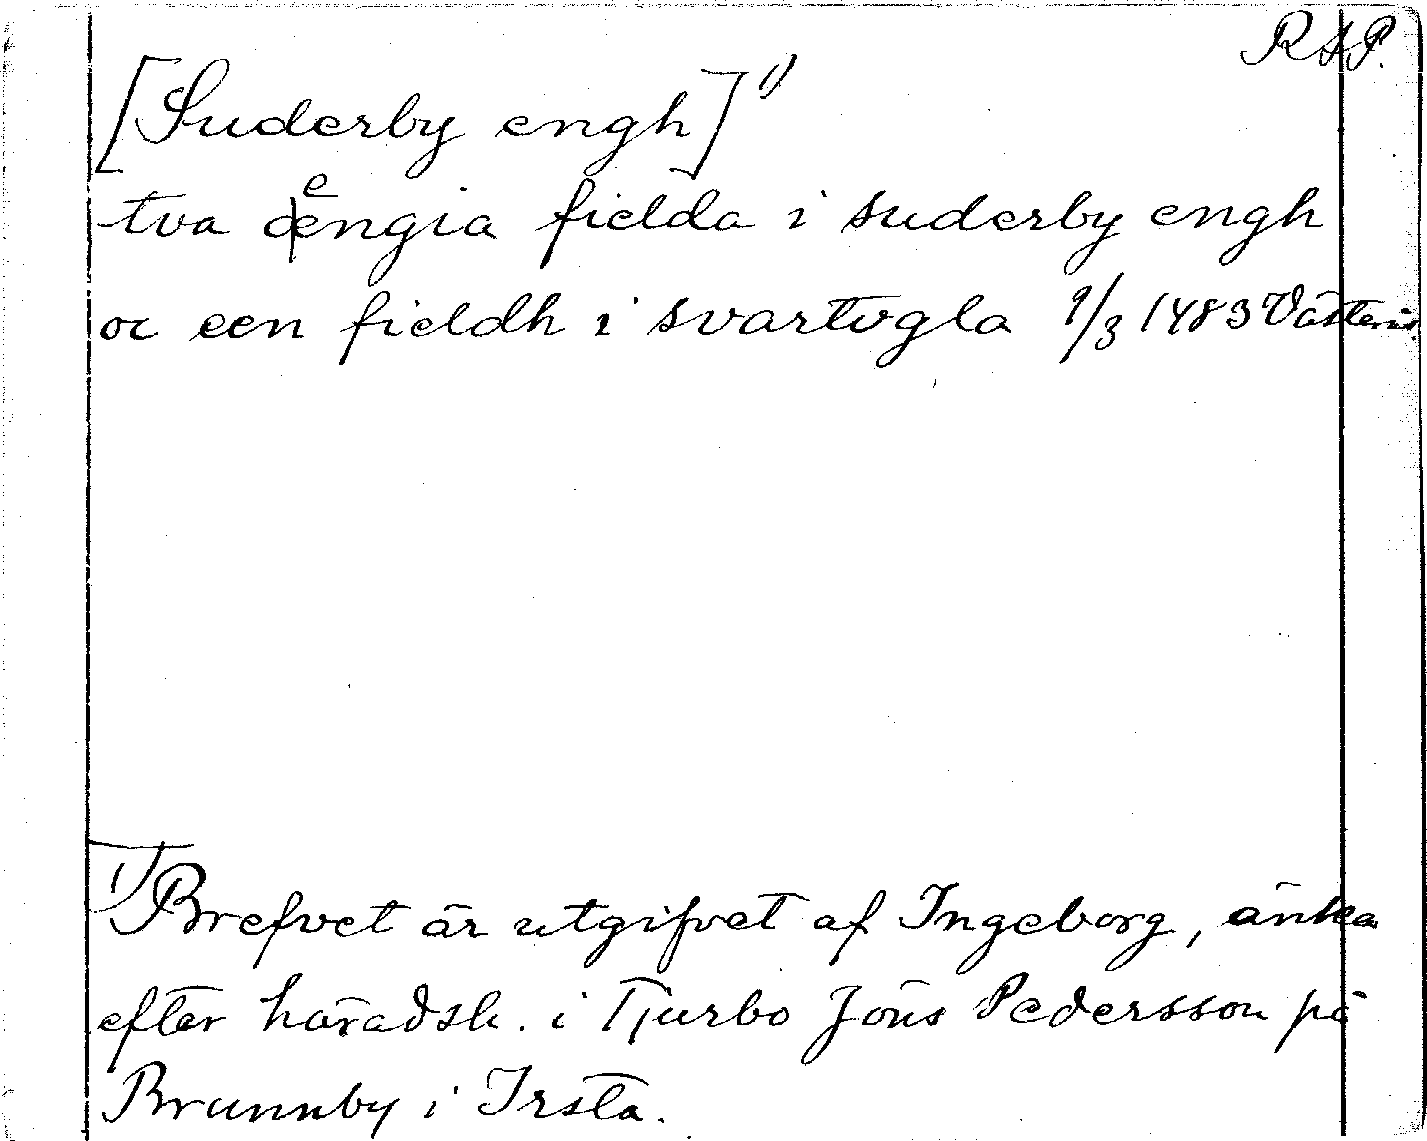 RAP.
[Suderby engh]¹⁾
tva œngia fielda i suderby engh
oc een fieldh i svartvgla 9/3 1483 Västerås
¹⁾ Brefvet är utgifvet af Ingeborg, änka
efter häradsh. i Tjurbo Jöns Pedersson på
Brunnby i Irsta.